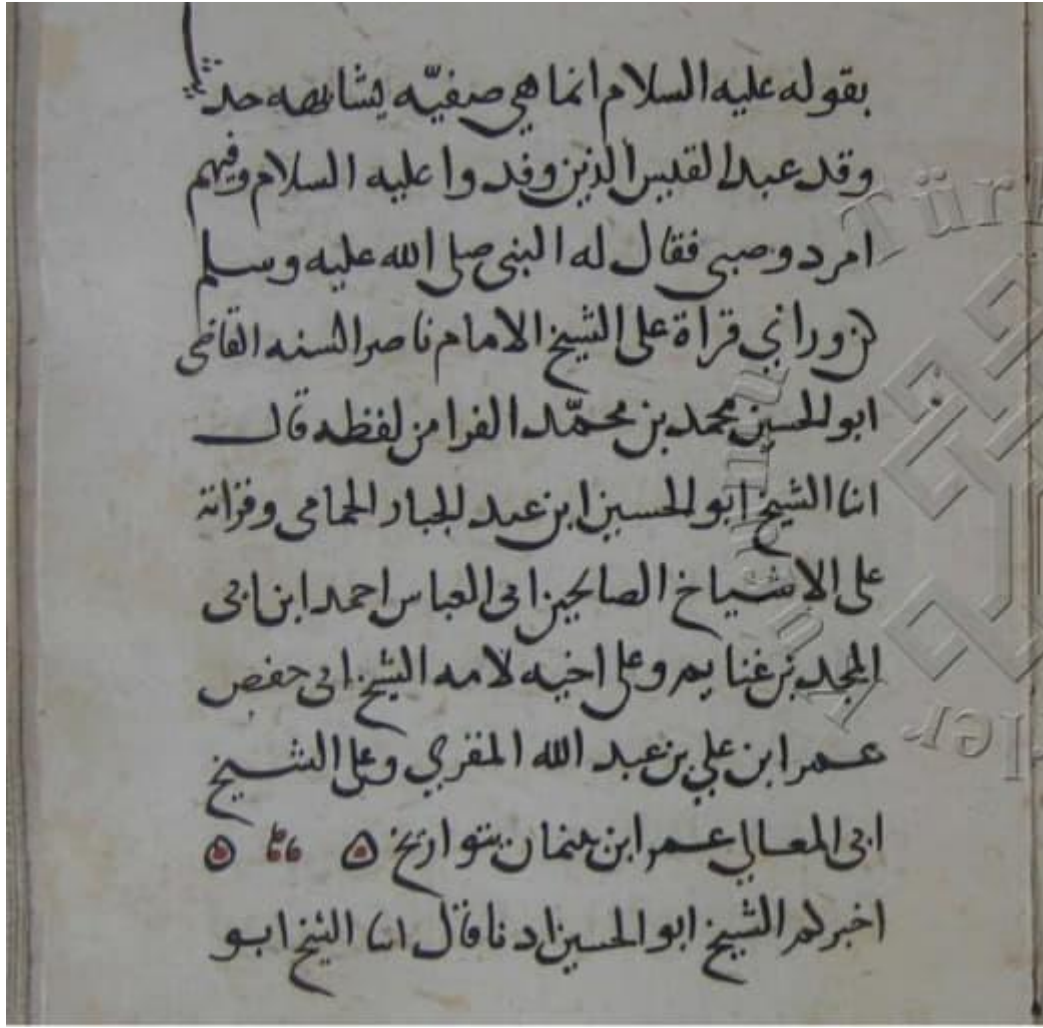 بقوله عليه السلام انما هي صفيّه يشابهه حد
وقد عبد القيس الذين وفدوا عليه السلام وفيهم
امرد وصبي فقال له النبي صلى الله عليه وسلم
وراي قراة على الشيخ الامام ناصر السنه القاضى
ابو الحسين محمد بن محمّد الفرا من لفظه قال
انا الشيخ ابو الحسين ابن عبد الجبار الحمامى وقراته
على الاشياخ الصالحين ابى العباس احمد ابن ابى
المجد بن غنايم وعلى اخيه لامه الشيخ ابى حفص
عمر ابن علي بن عبد الله المقري وعلى الشيخ
ابى المعالي عمر ابن بتواريخ
اخبركم الشيخ ابو الحسين قال انا الشيخ ابو